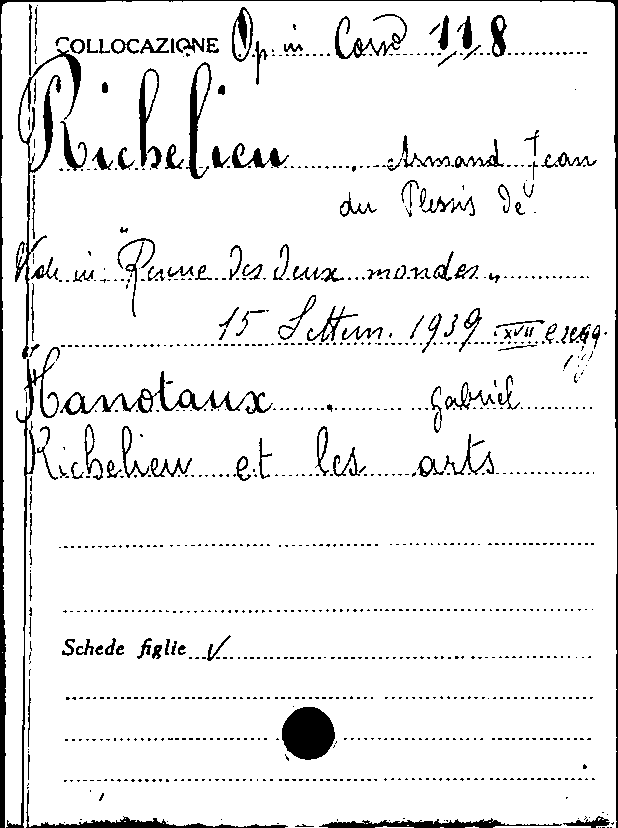 COLLOCAZIONE Op. in Corso 118
Richelieu . Armand Jean
du Plessis de
Vide in: "Revue des deux mondes„
15 Settem. 1939 XVII e segg.
Hanotaux . Gabriel
Richelieu et les arts
Schede figlie V